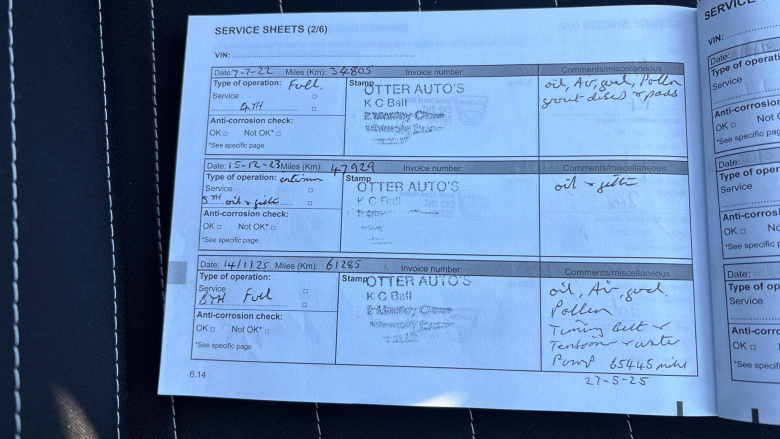 SERVICE SHEETS (2/6)
VIN:
Date: 7-7-22 Miles (Km): 34805 Invoice number: Comments/miscellaneous
Type of operation: Full
Service
4TH
Anti-corrosion check:
OK Not OK*
*See specific page
Stamp
OTTER AUTO'S
K C Ball
oil, Air, fuel, Pollen
front discs & pads
Date: 15-12-23 Miles (Km): 47929 Invoice number: Comments/miscellaneous
Type of operation: interim
Service
5TH oil & filter
Anti-corrosion check:
OK Not OK*
*See specific page
Stamp
OTTER AUTO'S
K C Ball
oil & filter
Date: 14/1/25 Miles (Km): 61285 Invoice number: Comments/miscellaneous
Type of operation:
Service
6TH Full
Anti-corrosion check:
OK Not OK*
*See specific page
Stamp
OTTER AUTO'S
K C Ball
oil, Air, fuel.
Pollen
Timing Belt &
Tensioner & water
Pump 65445 miles
27-5-25
6.14
SERVICE
VIN:
Date:
Type of operation
Service
Anti-corrosi
OK Not O
*See specific page
Date:
Type of oper
Service
Anti-corrosi
OK No
*See specifi
Date:
Type of op
Service
Anti-corro
OK
*See specif